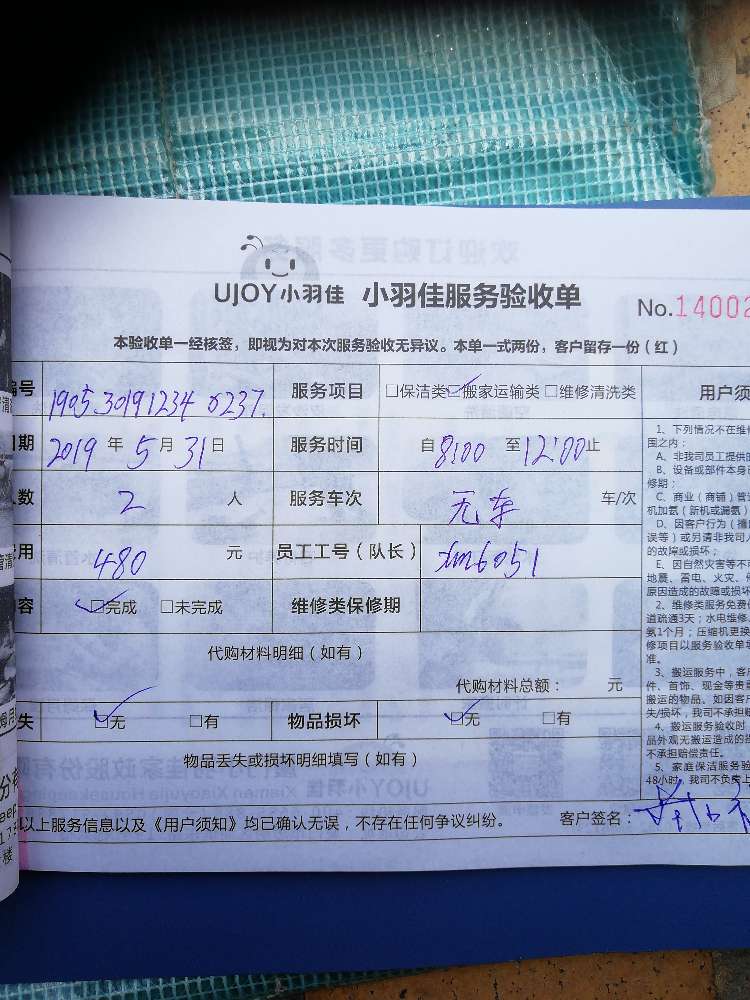 UJOY小羽佳 小羽佳服务验收单
No.14002
本验收单一经核签，即视为对本次服务验收无异议。本单一式两份，客户留存一份（红）
编号 190530191234 0237. 服务项目 □保洁类 ☑搬家运输类 □维修清洗类
日期 2019 年 5 月 31 日 服务时间 自 8:00 至 12:00 止
人数 2 人 服务车次 无车 车/次
费用 480 元 员工工号（队长） xm6051
内容 ☑完成 □未完成 维修类保修期
代购材料明细（如有）
代购材料总额： 元
失 ☑无 □有 物品损坏 ☑无 □有
物品丢失或损坏明细填写（如有）
以上服务信息以及《用户须知》均已确认无误，不存在任何争议纠纷。 客户签名：
用户须
1、下列情况不在维
围之内：
A、非我司员工提供的
B、设备或部件本身
修期；
C、商业（商铺）管
机加氨（新机或漏氨）
D、因客户行为（擅
误等）或另请非我司人
的故障或损坏；
E、因自然灾害等不
地震、雷电、火灾、
原因造成的故障或损坏
2、维修类服务免费
道疏通3天；水电维修
氨1个月；压缩机更换
修项目以服务验收单
准。
3、搬运服务中，客
件、首饰、现金等贵
搬运的物品。如因客户
失/损坏，我司不承担赔
4、搬运服务验收时
品外观无搬运造成的损
不承担赔偿责任。
5、家庭保洁服务验
48小时，我司不负责上